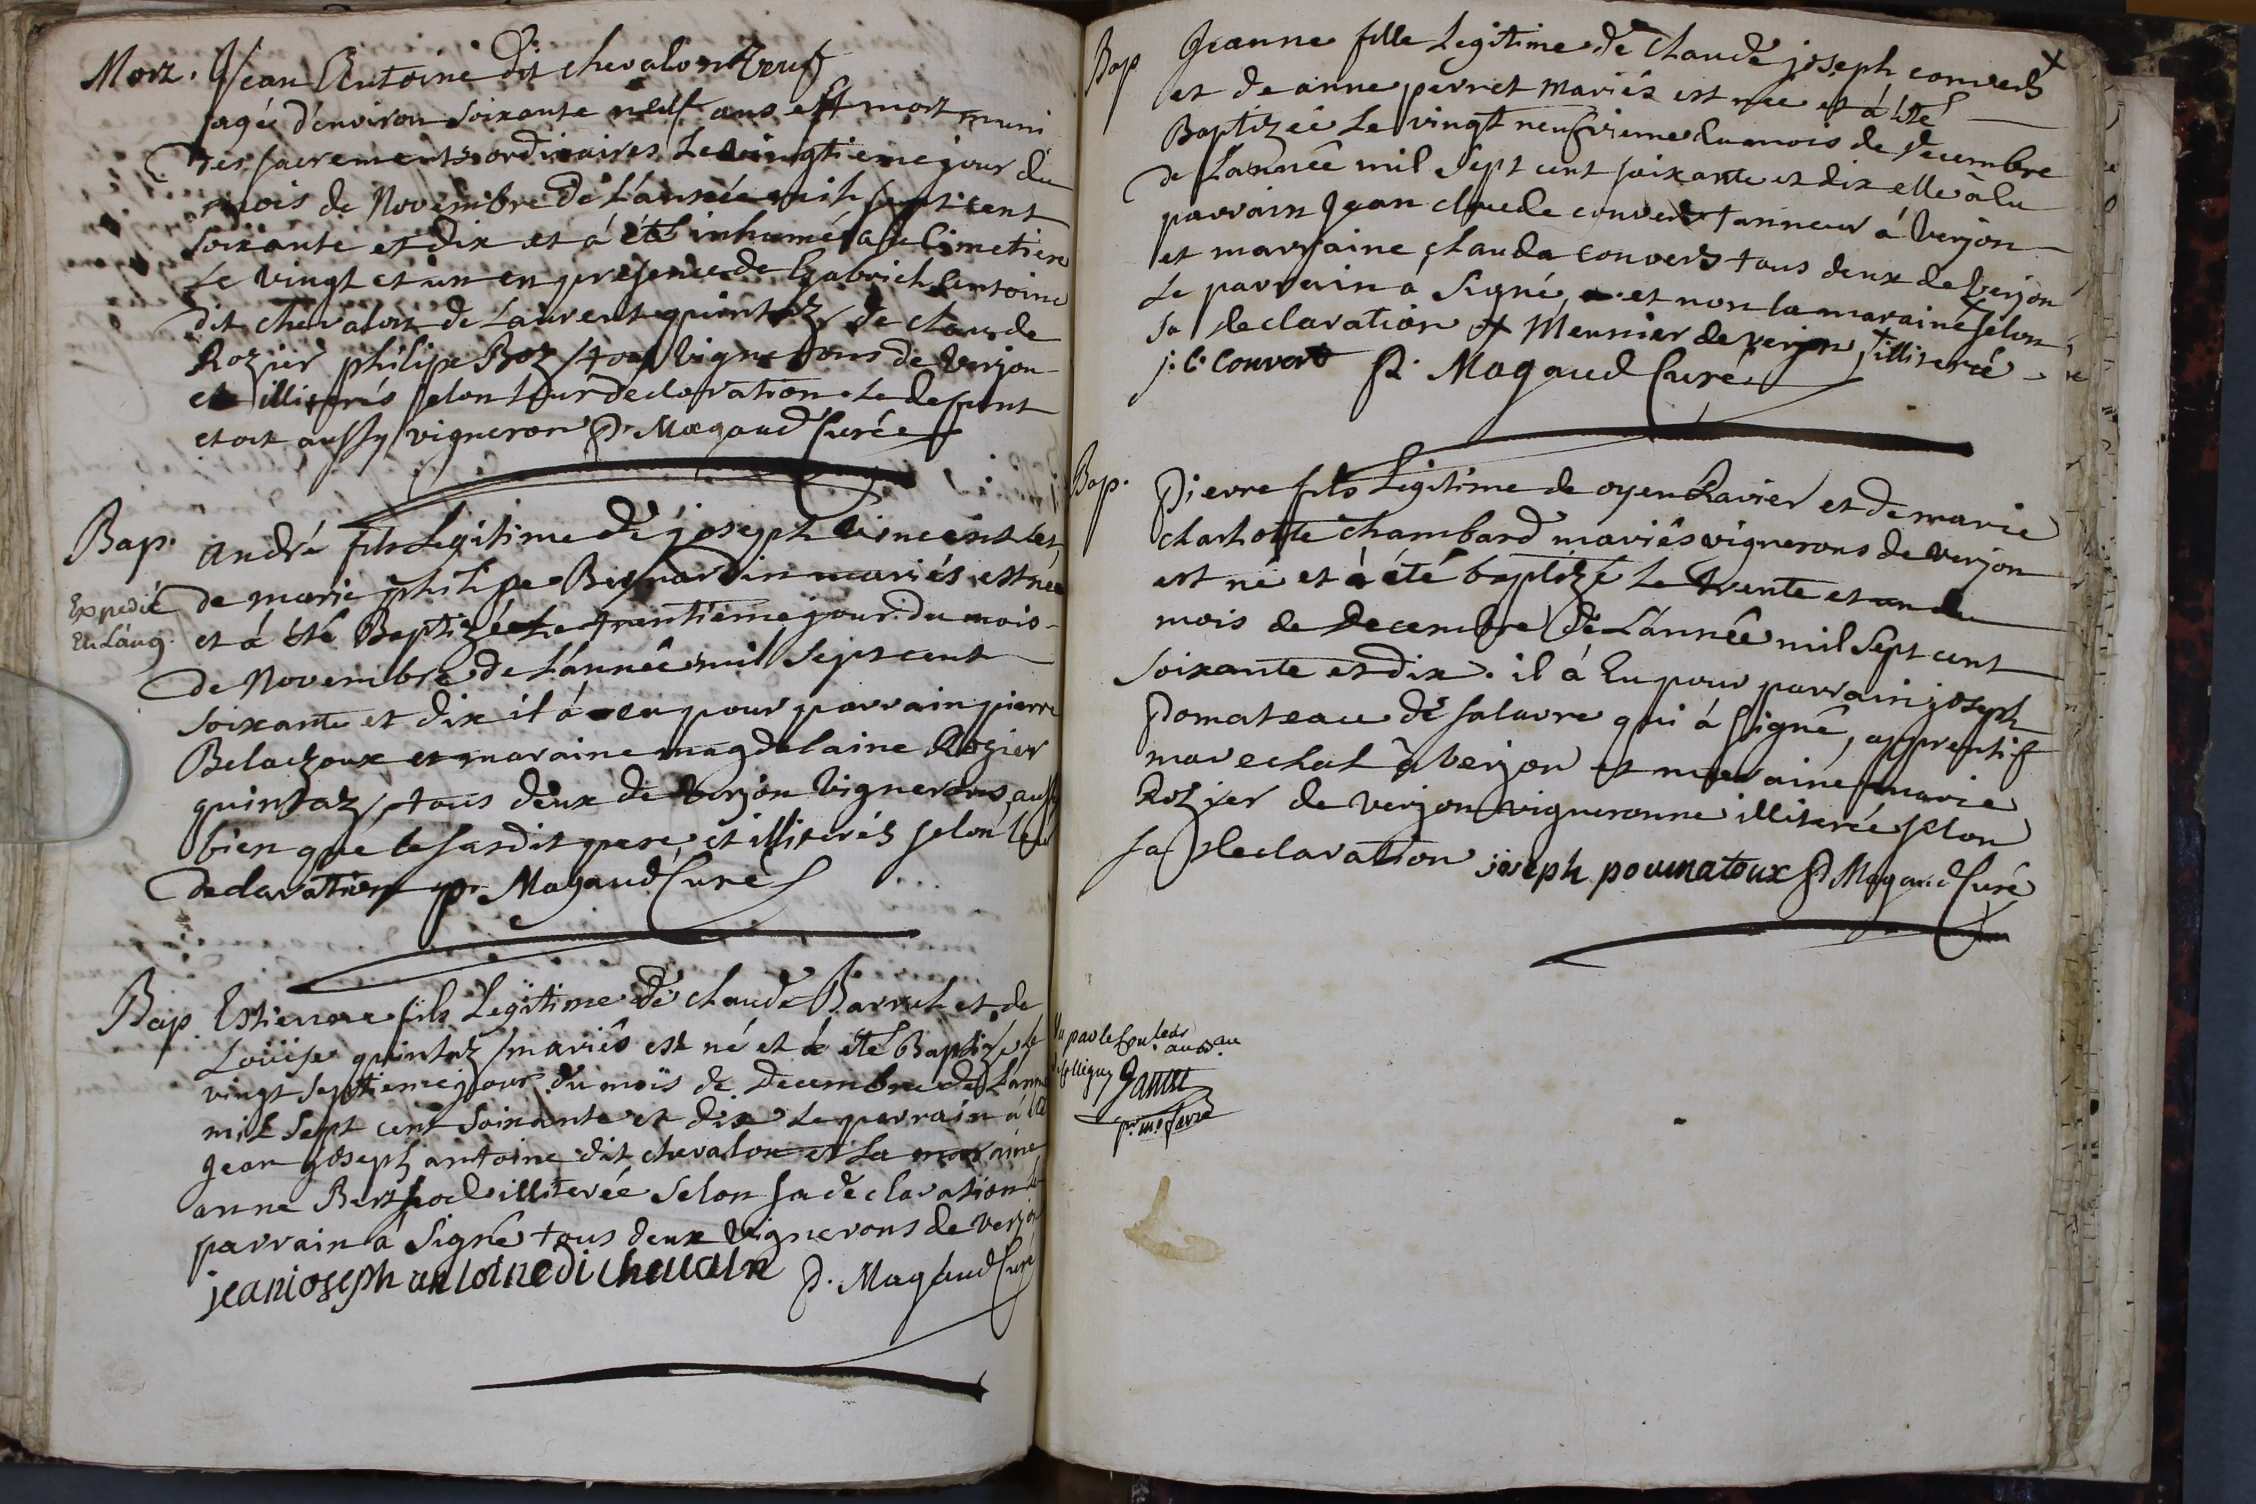 Mort. Jean Antoine dit chevalon veuf
agée d'environ soixante neuf ans est mort muni
des sacrements ordinaires le vingtieme jour du
mois de Novembre de l'année mil sept cent
soixante et dix et à été inhumé au Cimetiere
le vingt et un en presence de Gabriel Antoine
dit chevalon de Laurent quintaz de claude
Rozier philipe Boz tous vignerons de verjon
et illiterés selon leur declaration. le defunt
etoit aussy vigneron P. Magaud Curé
Bap. andré fils legitime de joseph vincent et
de marie philipe Bernardin mariés est née
Expedié
En Laug.
et á été Baptizé le trentieme jour du mois
de Novembre de l'année mil sept cent
soixante et dix il á eu pour parrain pierre
Beladzoux et maraine magdelaine Rozier
quintaz tous deux de verjon vignerons, aussy
bien que le susdit pere, et illiterés selon leur
declaration p. Magaud Curé
Bap. Estienne fils legitime de claude Barruel et de
Louise quintaz mariés est né et á été Baptizé le
vingt septieme jour du mois de Decembre de l'année
mil sept cent soixante et dix le parrain á été
jean joseph antoine dit chevalon et la maraine
anne Berthod illiterée selon sa declaration le
parrain á signé tous deux vignerons de verjon
jean ioseph antoine di chevaln P. Magaud Curé
Bap Jeanne fille legitime de Claude joseph convers +
et de anne perret mariés est née et á été
Baptizée le vingt neufvieme du mois de Decembre
de l'année mil sept cent soixante et dix elle à eu
parrain jean claude convert tanneur á verjon
et marraine clauda convers tous deux de verjon
le parrain á signé et non la maraine selon
sa declaration + Meunier de verjon + illiterée
j. C. Convert P. Magaud Curé
Bap. Pierre fils legitime de oyen Ravier et de marie
charlotte chambard mariés vignerons de verjon
est né et à été baptizé le trente et un du
mois de decembre de l'année mil sept cent
soixante et dix. il á eu pour parrain joseph
Pomateau de salavre qui á signé, apprentif
marechal à verjon et maraine marie
Rozier de verjon vigneronne illiterée selon
sa declaration joseph poumatoux P. Magaud Curé
Vu par le Con.leur au B.au
de Colligny